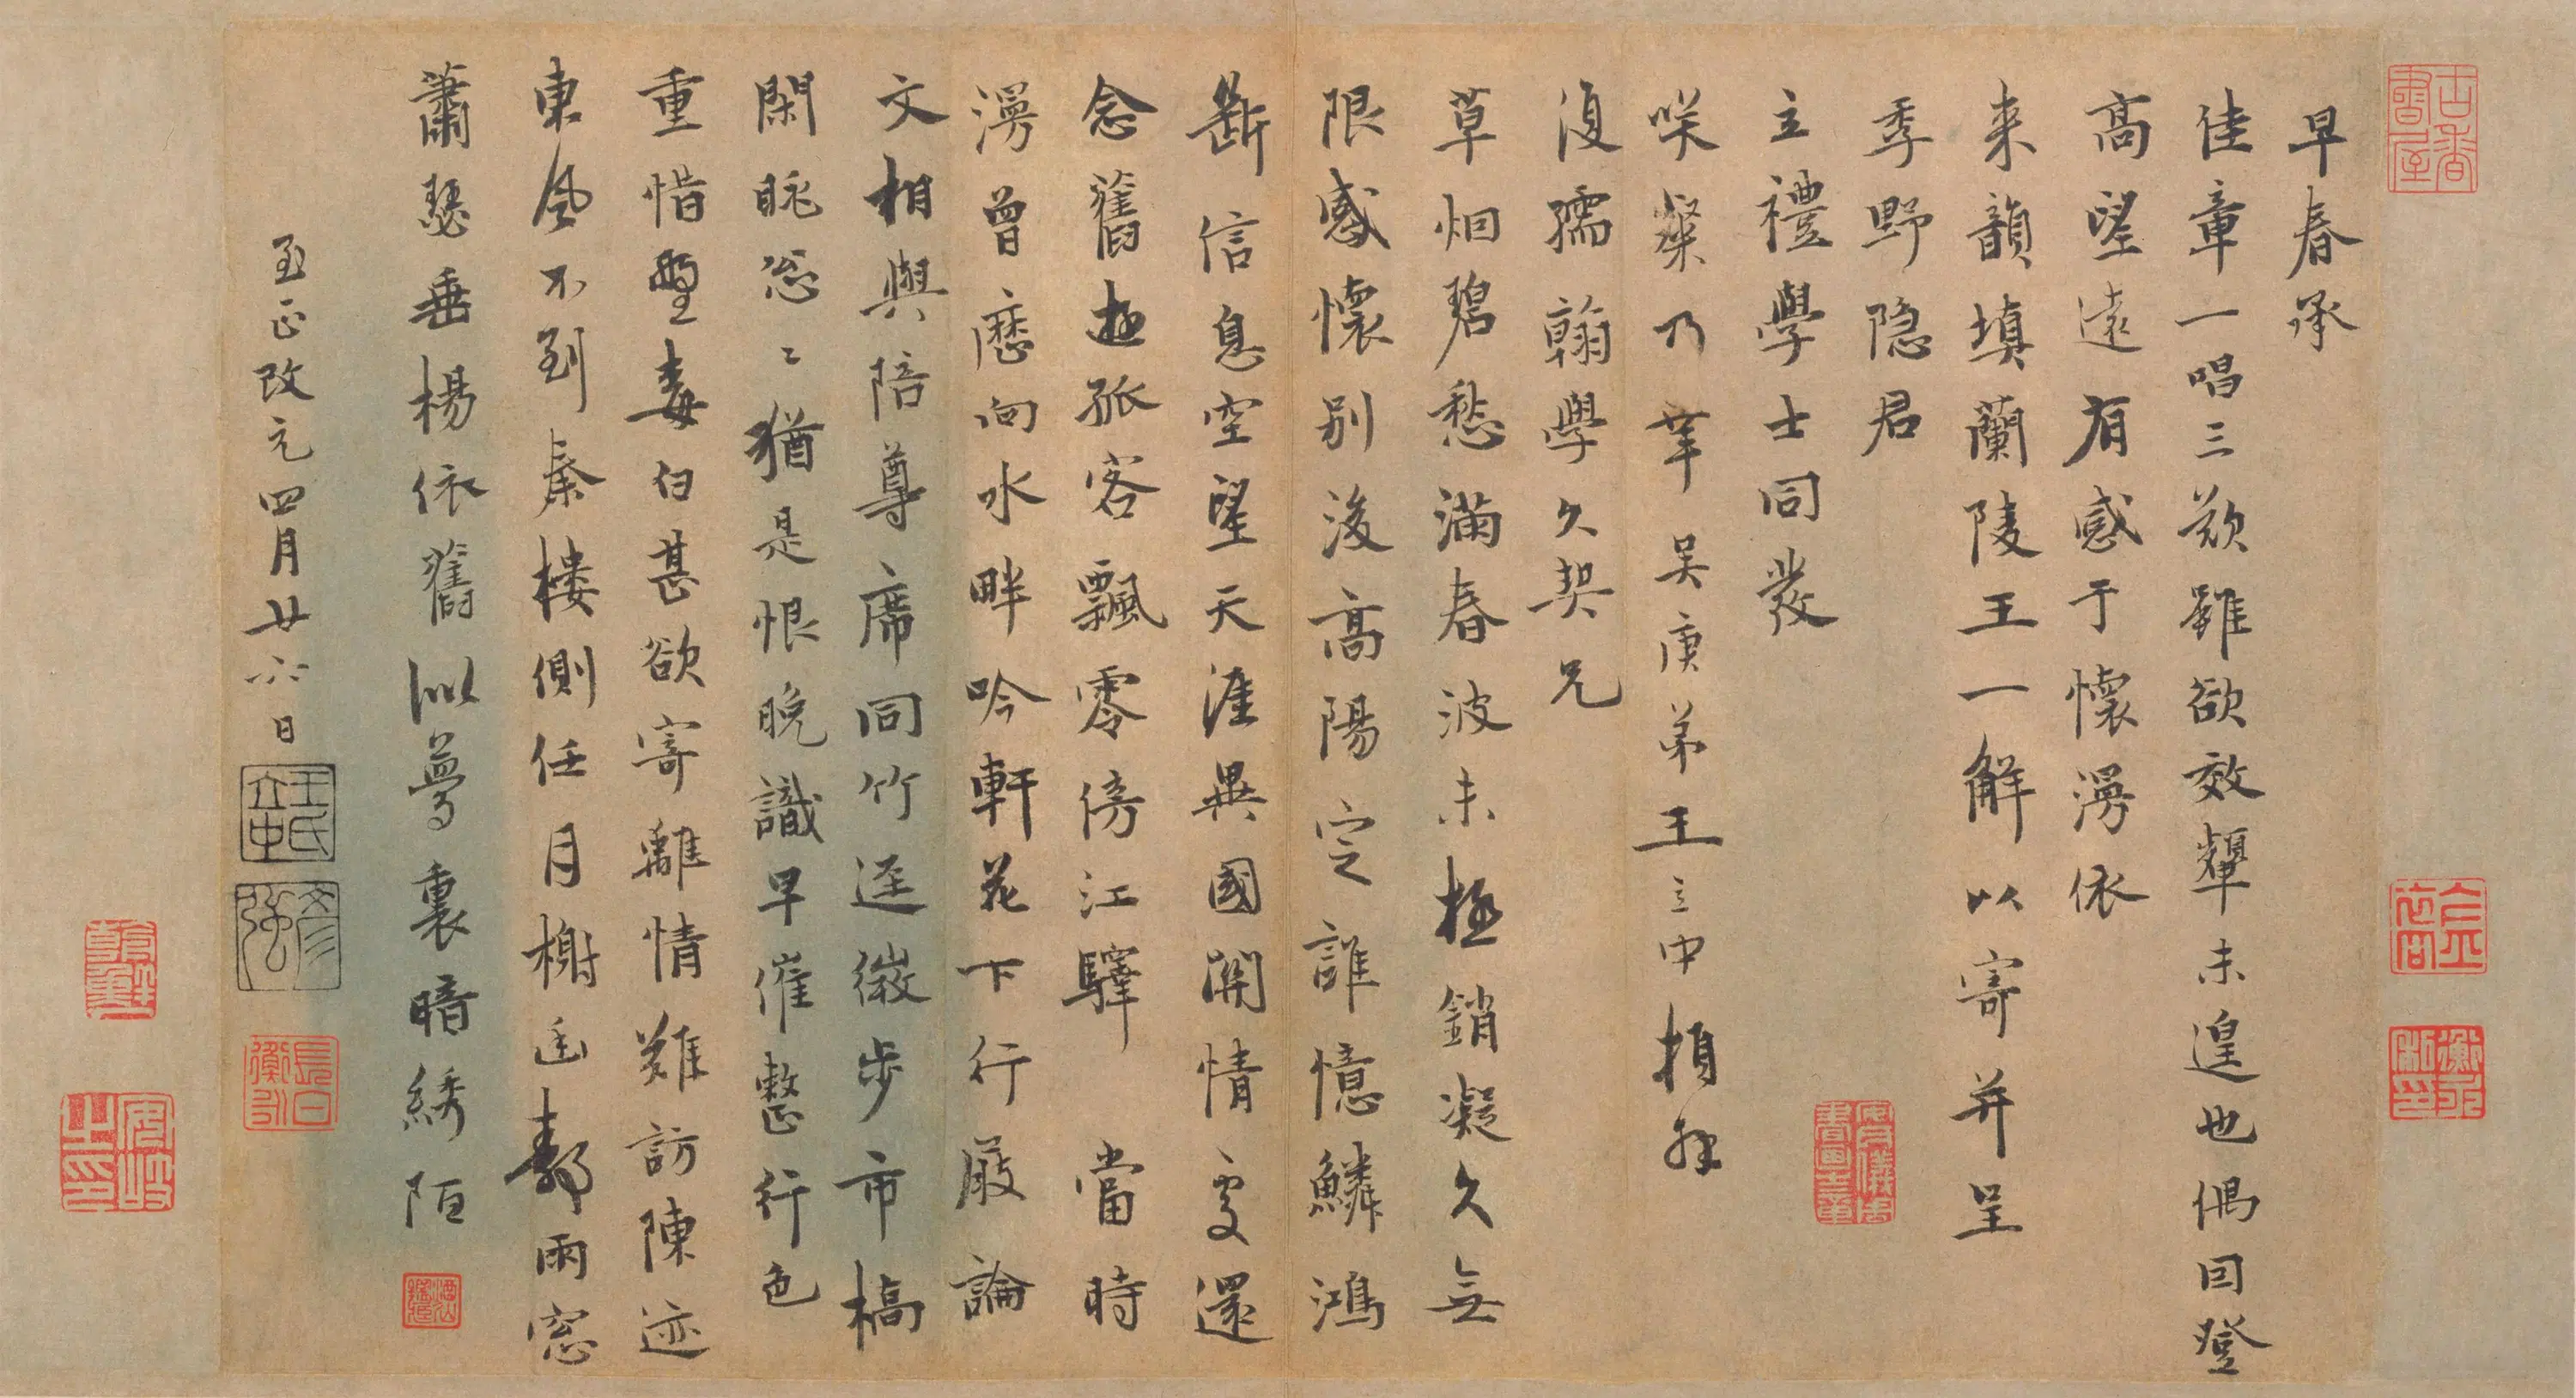 早春承
佳章一唱三歎雖欲效顰未遑也偶因登
高望遠有感于懷漫依
来韻填蘭陵王一解以寄并呈
季野隐君
立禮學士同發
咲粲乃幸吴庚弟王立中頓拜
復孺翰學久契兄
草烟碧愁滿春波未極銷凝久無
限感懷別後高陽定誰憶鱗鴻
斷信息空望天涯異國開情處還
念舊遊孤客飄零傍江驛 當時
漫曾歷向水畔吟軒花下行厳論
文相與陪尊席同竹逕微步市橋
閑眺忩〻猶是恨晚識早催整行色
重惜髩毛白甚欲寄離情難訪陳迹
東風不到秦樓側任月榭迷霧雨窓
蕭瑟垂楊依舊似夢裏暗綉陌
至正改元四月廿六日
王氏立中
彦强